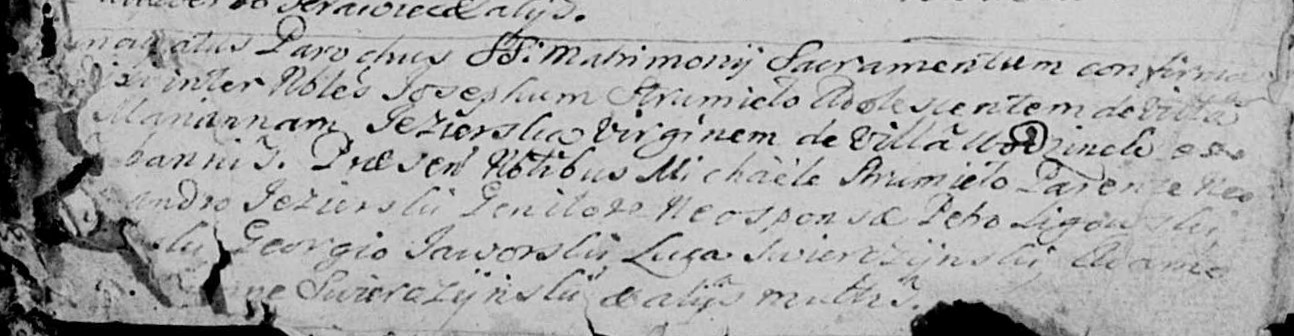 & alijs.
Parochus SS. Matrimonij Sacramentum confirma
inter Nobles Josephum Strumieło Adolescentem de Villa
Mariannam Jezierska Virginem de Villa Wodzinek
bannis. Præsen Nobibus Michaële Strumieło Parente Neo
andro Jezierskii Genitore Neosponsæ Petro Ligowskii
skii Georgio Jaworskii Luca Swierczÿnskii Adamo
Swierczÿnskii & alijs multis.